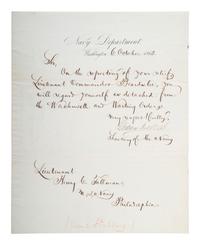 Navy Department
Washington 6 October, 186
Sir,
On the reporting of your relief
Lieutenant Commander you
will regard yourself as detached from
the Wachusett and Waiting Orders
Very respectfully,
Secretary of the Navy
Lieutenant
Henry E.
U.S. Navy
Philadelphia